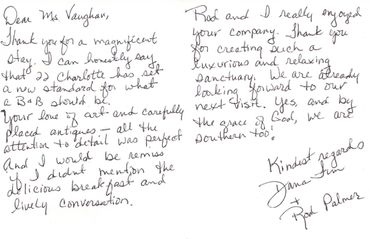 Dear Ms Vaughan,
Thank you for a magnificent
stay. I can honestly say
that 22 Charlotte has set
a new standard for what
a B+B should be.
Your love of art and carefully
placed antiques — all the
attention to detail was perfect
And I would be remiss
if I didnt mention the
delicious breakfast and
lively conversation.
Rod and I really enjoyed
your company. Thank you
for creating such a
luxurious and relaxing
sanctuary. We are already
looking forward to our
next visit. Yes, and by
the grace of God, we are
southern too!
Kindest regards
Dana
+
Rod Palmer